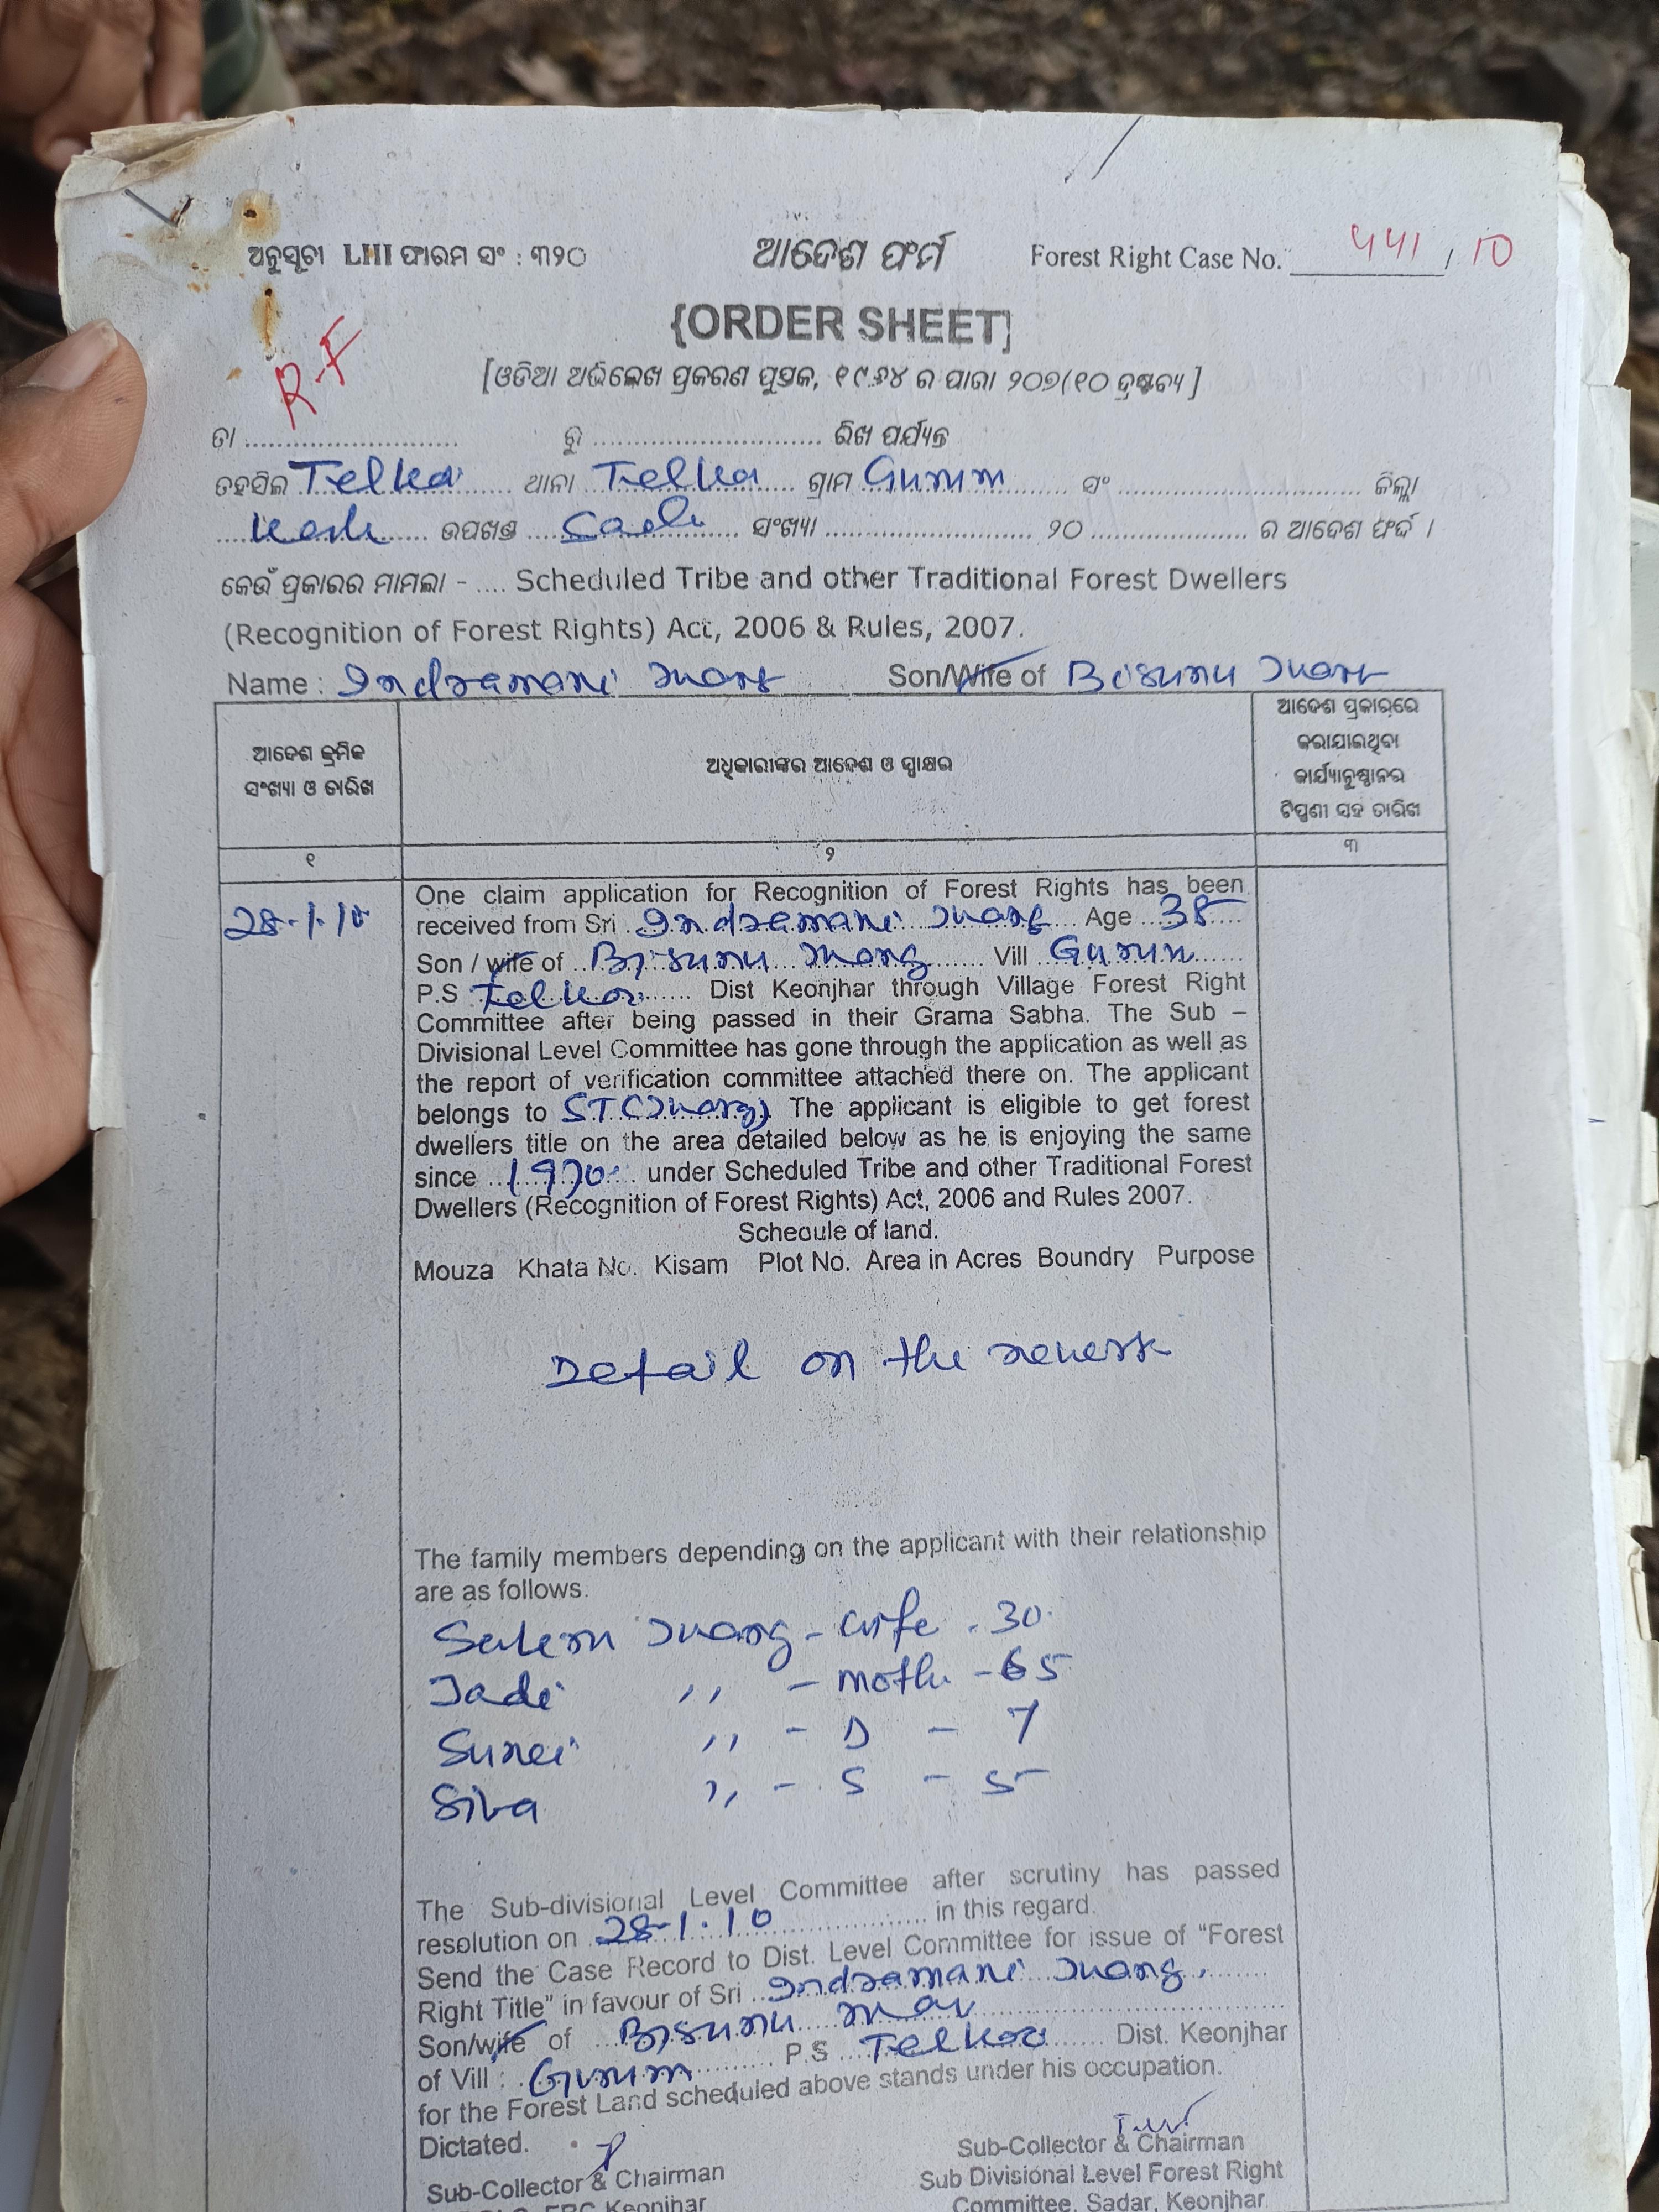 ଅନୁସୂଚୀ LIII ଫାରମ ସଂ : ୩୨୦ ଆଦେଶ ଫର୍ମ Forest Right Case No. 441 / 10
{ORDER SHEET]
R.F
[ଓଡିଆ ଅଭିଲେଖ ପ୍ରକରଣ ପୁସ୍ତକ, ୧୯୬୪ ର ପାରା ୨୦୭(୧୦ ଦ୍ରଷ୍ଟବ୍ୟ ]
ତା .......................... ରୁ ............................ ରିଖ ପର୍ଯ୍ୟନ୍ତ
ତହସିଲ Telkoi ଥାନା Telkoi ଗ୍ରାମ Gurum ସଂ ............................. ଜିଲ୍ଲା
ଉପଖଣ୍ଡ Sadar ସଂଖ୍ୟା ......................... ୨୦ ................... ର ଆଦେଶ ଫର୍ଦ୍ଦ ।
କେଉଁ ପ୍ରକାରର ମାମଲା - .... Scheduled Tribe and other Traditional Forest Dwellers
(Recognition of Forest Rights) Act, 2006 & Rules, 2007.
Name : Indramani Juang Son/Wife of Bisunu Juang
ଆଦେଶ କ୍ରମିକ ସଂଖ୍ୟା ଓ ତାରିଖ
ଅଧିକାରୀଙ୍କର ଆଦେଶ ଓ ସ୍ୱାକ୍ଷର
ଆଦେଶ ପ୍ରକାରରେ
କରାଯାଇଥିବା
କାର୍ଯ୍ୟାନୁଷ୍ଠାନର
ଟିପ୍ପଣୀ ସହ ତାରିଖ
୧ ୨ ୩
28.1.10
One claim application for Recognition of Forest Rights has been
received from Sri Indramani Juang Age 38
Son / wife of Bisunu Juang Vill Gurum
P.S Telkoi Dist Keonjhar through Village Forest Right
Committee after being passed in their Grama Sabha. The Sub –
Divisional Level Committee has gone through the application as well as
the report of verification committee attached there on. The applicant
belongs to ST(Juang) The applicant is eligible to get forest
dwellers title on the area detailed below as he is enjoying the same
since 1970 under Scheduled Tribe and other Traditional Forest
Dwellers (Recognition of Forest Rights) Act, 2006 and Rules 2007.
Schedule of land.
Mouza Khata No. Kisam Plot No. Area in Acres Boundry Purpose
Detail on the reverse
The family members depending on the applicant with their relationship
are as follows.
Juang - wife - 30
Jadi ,, - moth - 65
Surei ,, - D - 7
Siba ,, - S - 5
The Sub-divisional Level Committee after scrutiny has passed
resolution on 28.1.10 in this regard.
Send the Case Record to Dist. Level Committee for issue of “Forest
Right Title” in favour of Sri Indramani Juang
Son/wife of Bisunu Juang
of Vill : Gurum P.S Telkoi Dist. Keonjhar
for the Forest Land scheduled above stands under his occupation.
Dictated.
Sub-Collector & Chairman
Keonjhar
Sub-Collector & Chairman
Sub Divisional Level Forest Right
Committee, Sadar, Keonjhar